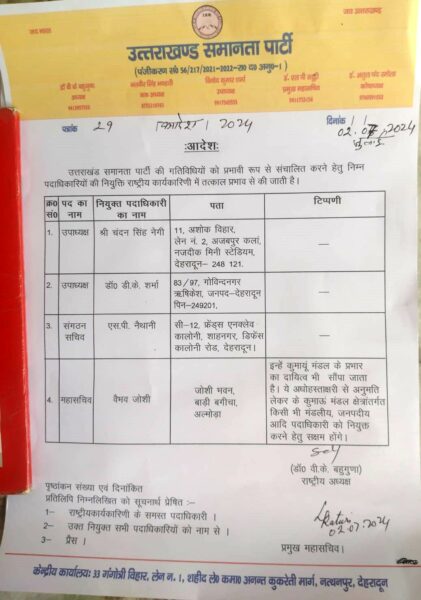 जय भारत
जय उत्तराखण्ड
उत्तराखण्ड समानता पार्टी
(पंजीकरण सं० 56/217/2021-2022-रा० द० अनु०-1)
अध्यक्ष
उपाध्यक्ष
प्रमुख महासचिव
कोषाध्यक्ष
पत्रांक 29
आदेश / 2024
दिनांक
02.07.2024
जुलाई
:आदेश:
उत्तराखंड समानता पार्टी की गतिविधियों को प्रभावी रूप से संचालित करने हेतु निम्न
पदाधिकारियों की नियुक्ति राष्ट्रीय कार्यकारिणी में तत्काल प्रभाव से की जाती है।
क्र० सं० पद का नाम नियुक्त पदाधिकारी का नाम पता टिप्पणी
1. उपाध्यक्ष श्री चंदन सिंह नेगी 11, अशोक विहार,
लेन नं. 2, अजबपुर कलां,
नजदीक मिनी स्टेडियम,
देहरादून– 248 121.
—
2. उपाध्यक्ष डॉ0 डी.के. शर्मा 83/97, गोविन्दनगर
ऋषिकेश, जनपद–देहरादून
पिन–249201,
—
3. संगठन सचिव एस.पी. नैथानी सी–12, फ्रेंड्स एनक्लेव
कालोनी, शाहनगर, डिफेंस
कालोनी रोड, देहरादून।
—
4. महासचिव वैभव जोशी जोशी भवन,
बाड़ी बगीचा,
अल्मोड़ा
इन्हें कुमायूं मंडल के प्रभार
का दायित्व भी सौंपा जाता
है। ये अधोहस्ताक्षरी से अनुमति
लेकर के कुमाऊं मंडल क्षेत्रांतर्गत
किसी भी मंडलीय, जनपदीय
आदि पदाधिकारी को नियुक्त
करने हेतु सक्षम होंगे।
(डॉ0 वी.के. बहुगुणा)
राष्ट्रीय अध्यक्ष
पृष्ठांकन संख्या एवं दिनांकित
प्रतिलिपि निम्नलिखित को सूचनार्थ प्रेषित :–
1– राष्ट्रीयकार्यकारिणी के समस्त पदाधिकारी ।
2– उक्त नियुक्त सभी पदाधिकारियों को नाम से ।
3– प्रैस ।
02.07.2024
प्रमुख महासचिव।
केन्द्रीय कार्यालयः 33 गंगोत्री विहार, लेन न. 1, शहीद ले0 कमा0 अनन्त कुकरेती मार्ग, नत्थनपुर, देहरादून